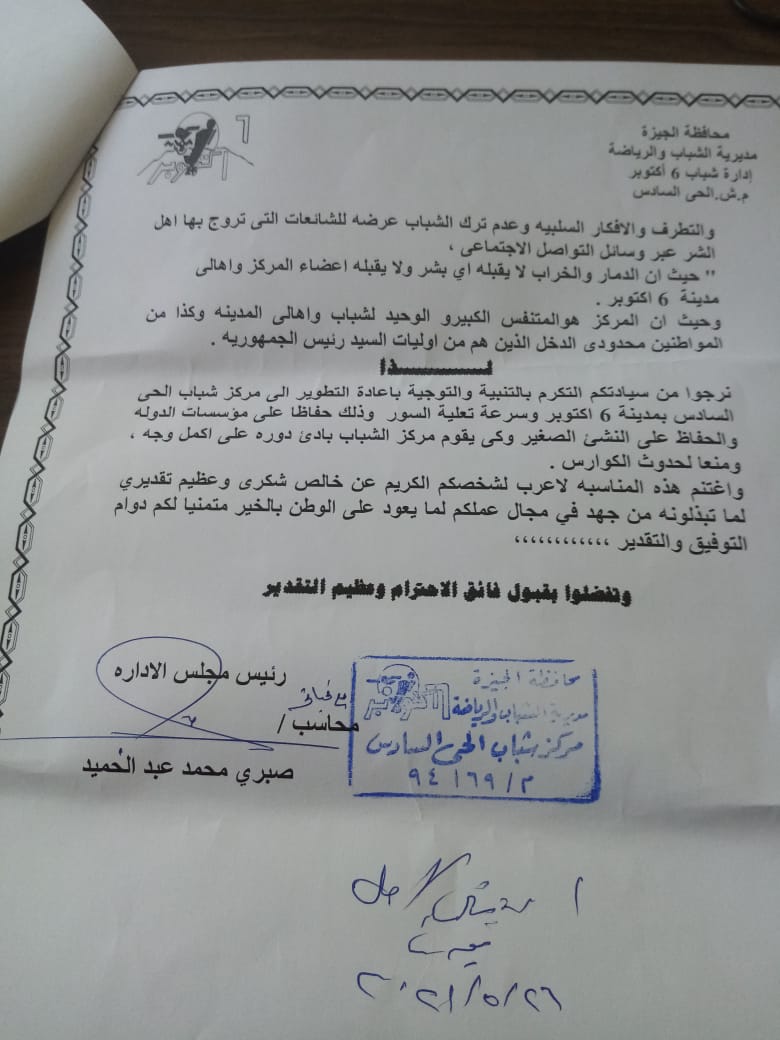 محافظة الجيزة
مديرية الشباب والرياضة
إدارة شباب 6 أكتوبر
م.ش.الحى السادس
6 أكتوبر
والتطرف والافكار السلبيه وعدم ترك الشباب عرضه للشائعات التى تروج بها اهل
الشر عبر وسائل التواصل الاجتماعى ،
" حيث ان الدمار والخراب لا يقبله اي بشر ولا يقبله اعضاء المركز واهالى
مدينة 6 اكتوبر .
وحيث ان المركز هوالمتنفس الكبيرو الوحيد لشباب واهالى المدينه وكذا من
المواطنين محدودى الدخل الذين هم من اوليات السيد رئيس الجمهوريه .
لــــــــــذا
نرجوا من سيادتكم التكرم بالتنبية والتوجية باعادة التطوير الى مركز شباب الحى
السادس بمدينة 6 اكتوبر وسرعة تعلية السور وذلك حفاظا على مؤسسات الدوله
والحفاظ على النشئ الصغير وكى يقوم مركز الشباب بادئ دوره على اكمل وجه ،
ومنعا لحدوث الكوارس .
واغتنم هذه المناسبه لاعرب لشخصكم الكريم عن خالص شكرى وعظيم تقديري
لما تبذلونه من جهد في مجال عملكم لما يعود على الوطن بالخير متمنيا لكم دوام
التوفيق والتقدير ،،،،،،،،،،،،
وتفضلوا بقبول فائق الاحترام وعظيم التقدير
رئيس مجلس الاداره
محاسب /
صبري محمد عبد الحميد
محافظة الجيزة
مديرية الشباب والرياضة
مركز شباب الحى السادس
م / ٦٩ / ٩٤